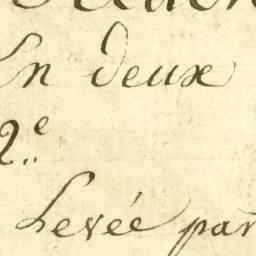 En deux
2.e
Levée par